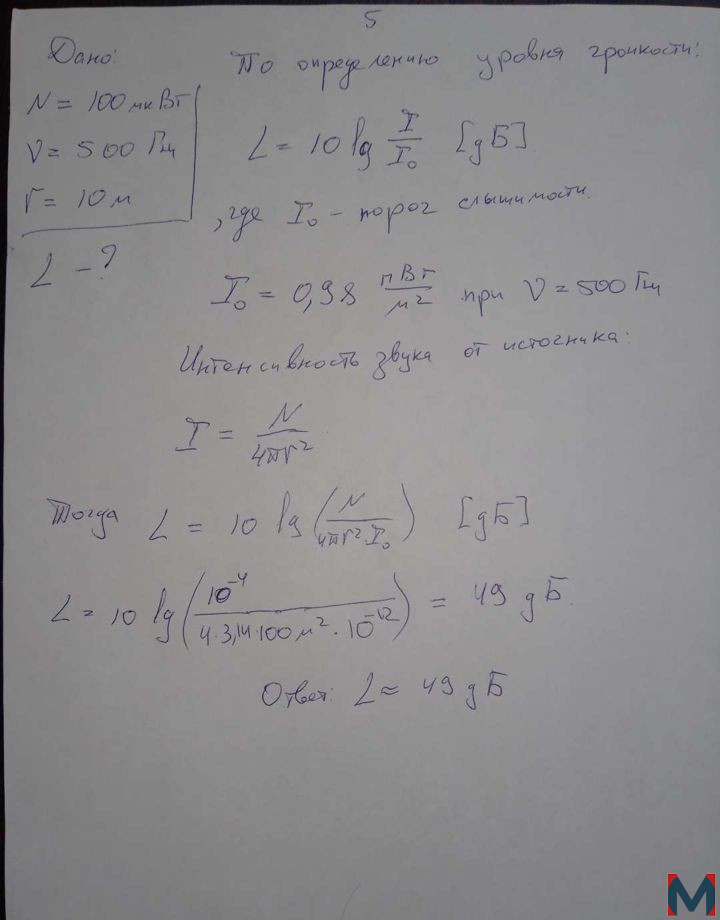 5
Дано:
N = 100 мкВт
ν = 500 Гц
r = 10 м
L - ?
По определению уровня громкости:
L = 10 lg I/I₀ [дБ]
, где I₀ - порог слышимости.
I₀ = 0,98 пВт/м² при ν = 500 Гц
Интенсивность звука от источника:
I = N/4πr².
Тогда L = 10 lg (N/4πr²I₀) [дБ]
L = 10 lg (10⁻⁴/4·3,14·100 м²·10⁻¹²) = 49 дБ.
Ответ: L ≈ 49 дБ
M